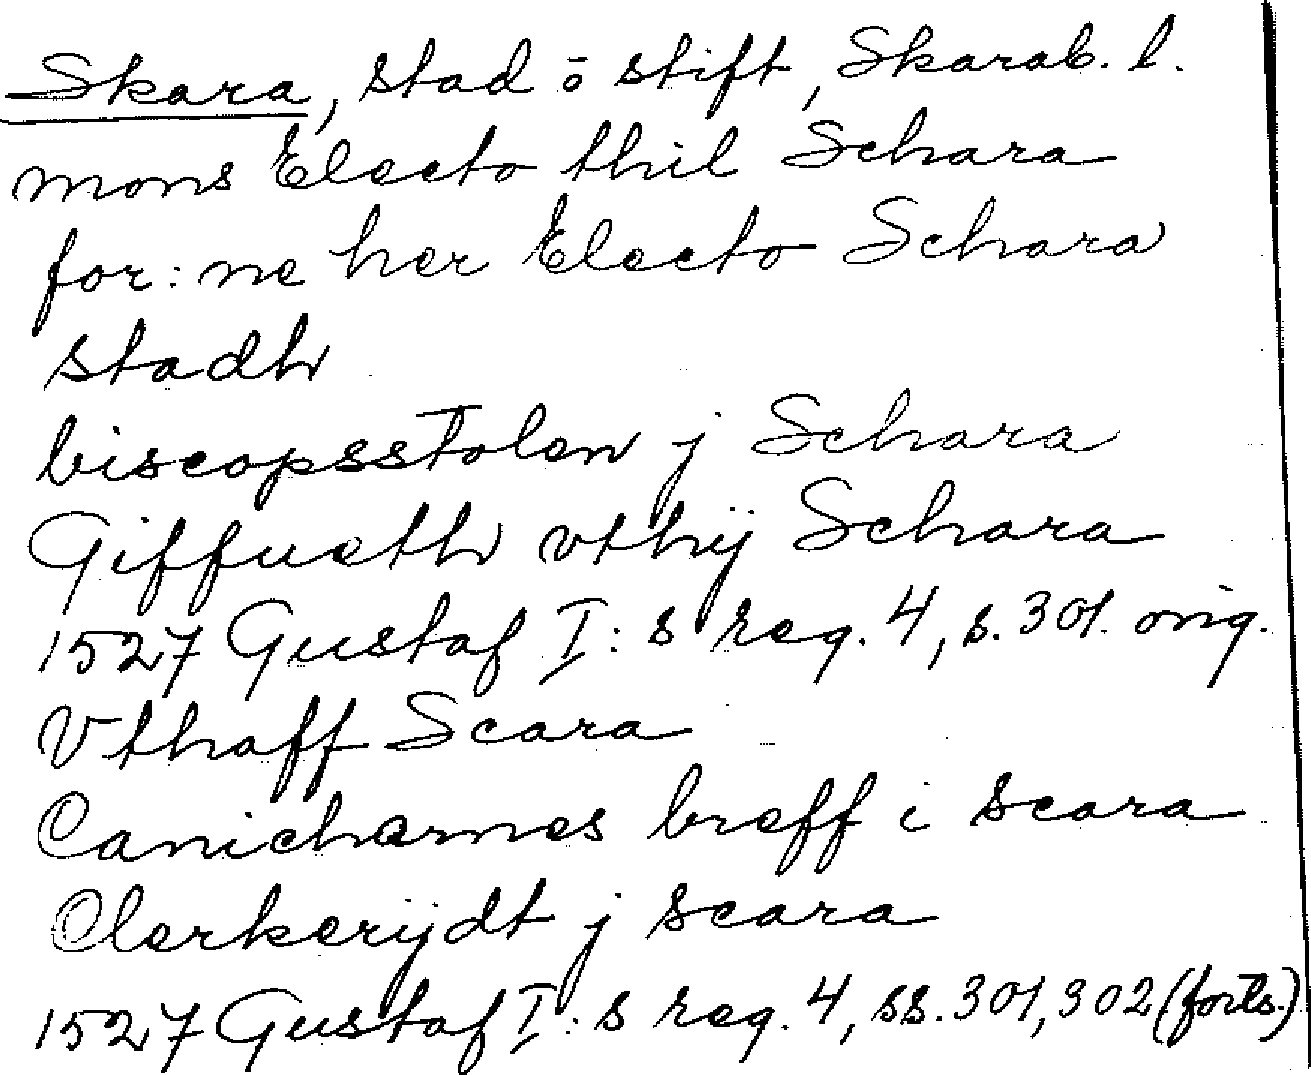 Skara, stad o stift, Skarab. l.
mons Electo thil Schara
for: ne her Electo Schara
stadh
biscopsstolen j Schara
Giffueth vthij Schara
1527 Gustaf I:s reg. 4, s. 301. orig.
Vthaff Scara
Canichernes breff i scara
Clerkerijdt j scara
1527 Gustaf I:s reg. 4, ss. 301, 302 (forts.)